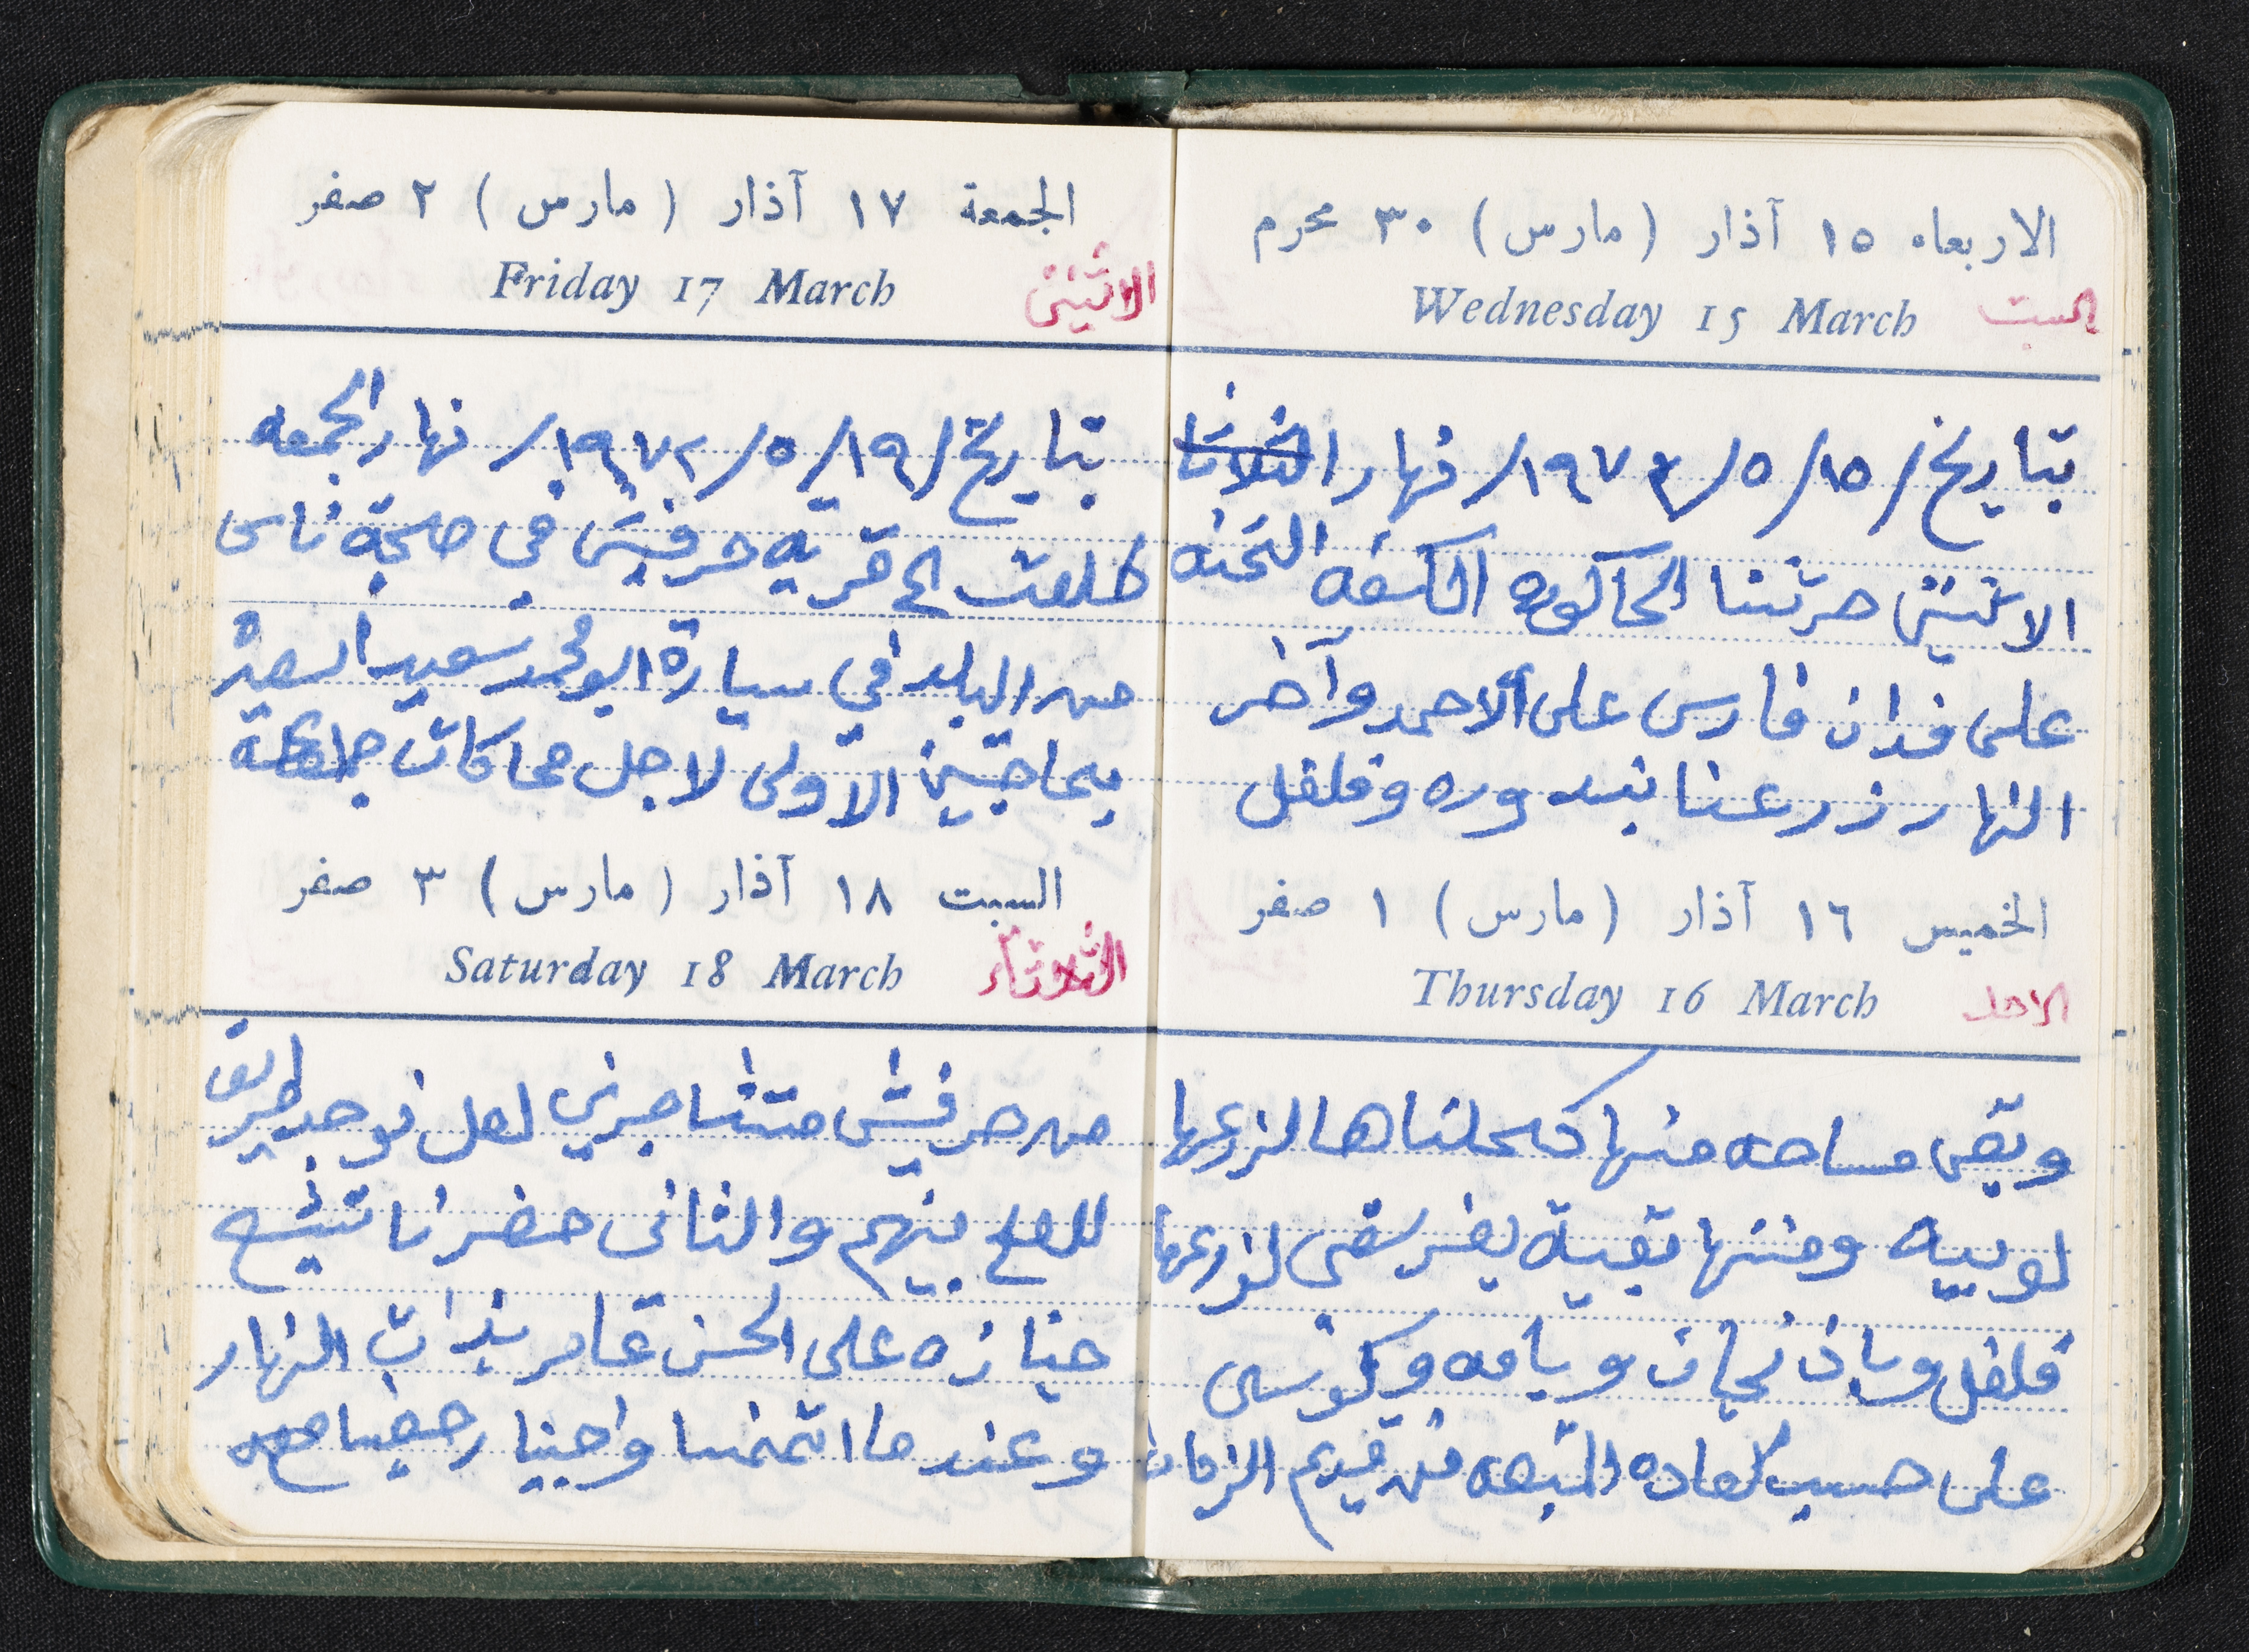 الاربعاء ١٥ آذار (مارس) ٣٠ محرم
Wednesday 15 March
السبت
بتاريخ /١٥/٥/١٩٧٢/ نهار الثلاثا
الاثنين حرثنا الحاكوره الكسفه التحته
على فدان فارس على الاحمد وآخر
النهار زرعنا بندوره وفلفل
الخميس ١٦ آذار (مارس) ١ صفر
Thursday 16 March
الاحد
وبقى مساحه منها كحلناها لنزرعها
لوبيه ومنها بقية يفر سقى لنزرعها
فلفل وباذنجان وباميه وكوسى
على حسب العاده المتبعه من قديم الزمان
الجمعة ١٧ آذار (مارس) ٢ صفر
Friday 17 March
الاثنين
بتاريخ /١٩/٥/١٩٧٢/ نهار الجمعه
طلعت الى قرية حرفيش في صحبة ناس
من البلد في سيارة ابو محمد سعيد السعد
بحاجتين الاولى لاجل محاكات جماعة
السبت ١٨ آذار (مارس) ٣ صفر
Saturday 18 March
الثلاثاء
من حرفيش متشاجرين لعل نوجد طريق
للصلح بينهم والثاني حضرنا تشيع
جنازه على الحسن عامر بذات النهار
وعندما اتممنا واجبنا رجعنا معه